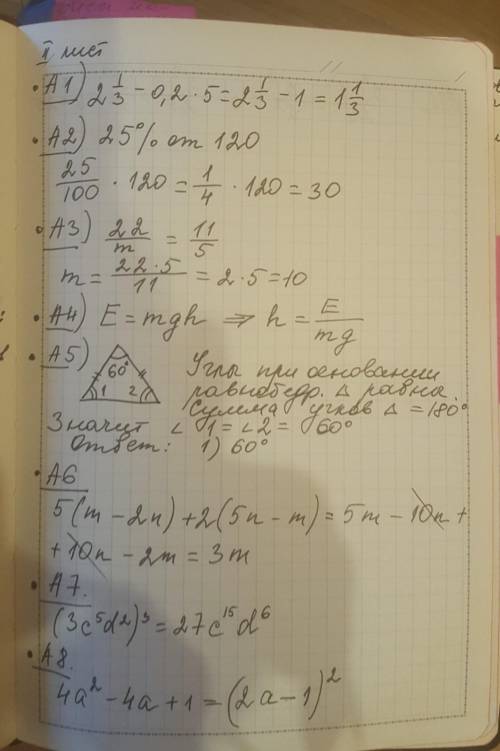 II лист
А1) 2 1/3 - 0,2 · 5 = 2 1/3 - 1 = 1 1/3
А2) 25% от 120
25/100 · 120 = 1/4 · 120 = 30
А3) 22/m = 11/5
m = 22·5/11 = 2 · 5 = 10
А4) E = mgh ⇒ h = E/mg
А5) 60° 1 2 Углы при основании
равнобедр. △ равны.
Сумма углов △ = 180°
Значит ∠1 = ∠2 = 60°
Ответ: 1) 60°
А6
5(m - 2n) + 2(5n - m) = 5m - 10n +
+ 10n - 2m = 3m
А7.
(3c⁵d²)³ = 27c¹⁵d⁶
А8.
4a² - 4a + 1 = (2a - 1)²